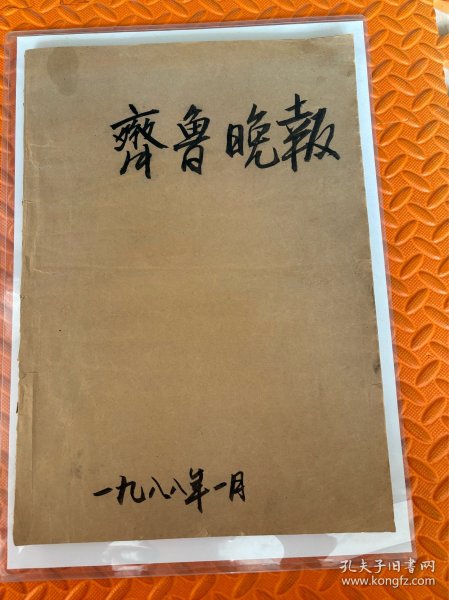 齊魯晚報
一九八八年一月
孔夫子旧书网
www.kongfz.com